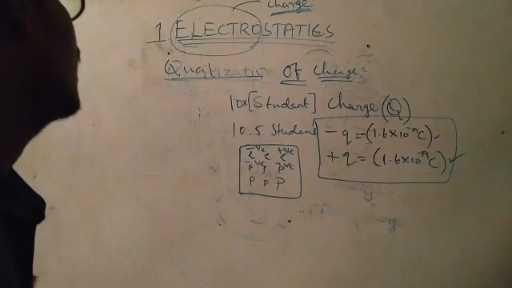 charge
1 ELECTROSTATICS
Quantization of Charge:
10x[Student] Charge (Q)
10.5 Student
- q = (1.6x10⁻¹⁹C)
+ q = (1.6x10⁻¹⁹C)
p p p